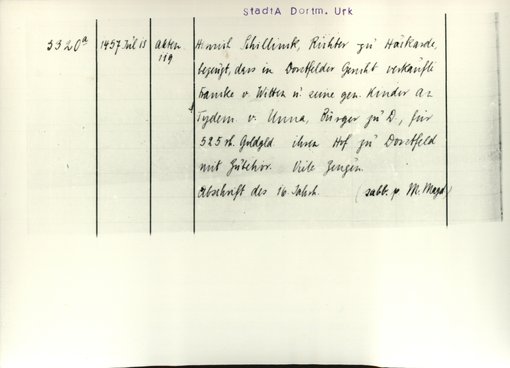 StadtA Dortm. Urk
3320a 1457 Juli 18 Akten 119 Hinrich Schillinck, Richter zu Hörkarde,
bezeugt, dass in Dorstfelder Gericht verkaufte
Francke v. Witten u. seine gen. Kinder an
Tydem. v. Unna, Bürger zu D., für
525 rh. Goldgld. ihren Hof zu Dorstfeld
mit Zubehör. Viele Zeugen.
Abschrift des 16. Jahrh. (sabb. p. M. Magd.)